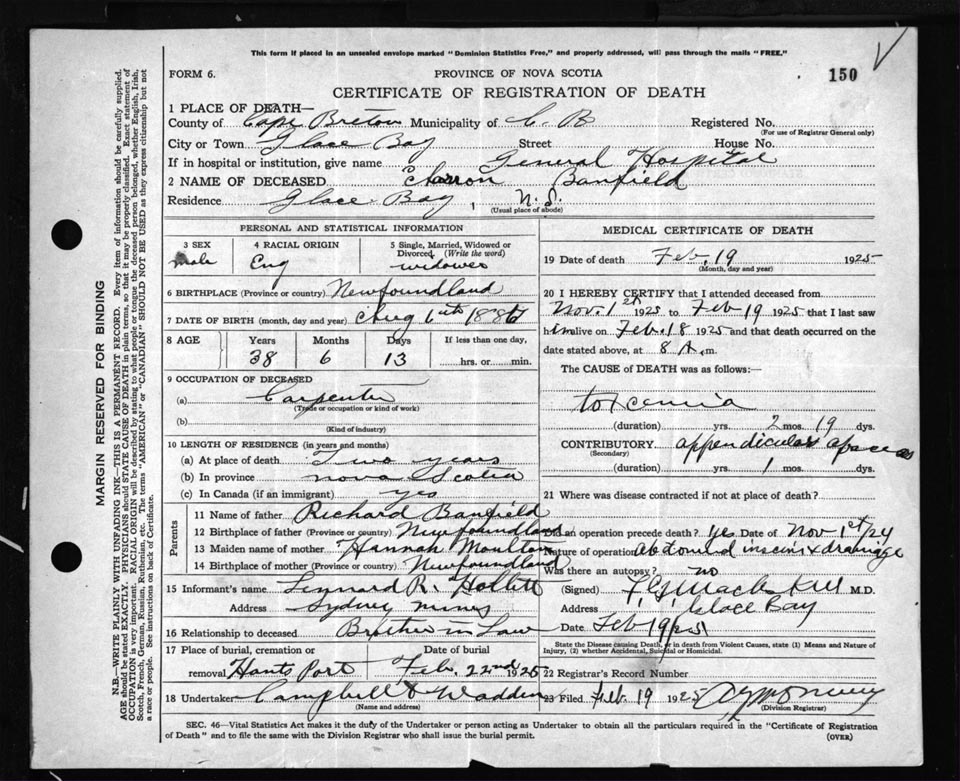 This form if placed in an unsealed envelope marked "Dominion Statistics Free," and properly addressed, will pass through the mails "FREE."
FORM 6.
PROVINCE OF NOVA SCOTIA
150
CERTIFICATE OF REGISTRATION OF DEATH
1 PLACE OF DEATH—
County of Cape Breton Municipality of C. B Registered No.
(For use of Registrar General only)
City or Town Glace Bay Street House No.
If in hospital or institution, give name General Hospital
2 NAME OF DECEASED Banfield
Residence Glace Bay, N.S.
(Usual place of abode)
PERSONAL AND STATISTICAL INFORMATION
3 SEX
male
4 RACIAL ORIGIN
Eng
5 Single, Married, Widowed or Divorced, (Write the word)
widower
6 BIRTHPLACE (Province or country) Newfoundland
7 DATE OF BIRTH (month, day and year) Aug 6 1886
8 AGE Years Months Days If less than one day,
38 6 13 hrs. or min.
9 OCCUPATION OF DECEASED
(a) Carpenter
(Trade or occupation or kind of work)
(b)
(Kind of industry)
10 LENGTH OF RESIDENCE (in years and months)
(a) At place of death Two years
(b) In province Nova Scotia
(c) In Canada (if an immigrant) yes
Parents
11 Name of father Richard Banfield
12 Birthplace of father (Province or country) Newfoundland
13 Maiden name of mother Hannah Moulton
14 Birthplace of mother (Province or country) Newfoundland
15 Informant's name Lennard R. Hollett
Address Sydney mines
16 Relationship to deceased Brother in Law
17 Place of burial, cremation or removal Hants Port
Date of burial
Feb. 22nd 1925
18 Undertaker Campbell & Wadden
(Name and address)
MEDICAL CERTIFICATE OF DEATH
19 Date of death Feb. 19 1925
(Month, day and year)
20 I HEREBY CERTIFY that I attended deceased from
Nov. 1st 1925 to Feb 19 1925 that I last saw
him alive on Feb. 18 1925 and that death occurred on
date stated above, at 8 A.m.
The CAUSE of DEATH was as follows:—
toxcemia
(duration) yrs. 2 mos. 19 dys.
CONTRIBUTORY appendicular
(Secondary)
(duration) yrs. 1 mos. dys.
21 Where was disease contracted if not at place of death?
Did an operation precede death? yes Date of Nov 1st/24
Nature of operation abdominal & drainage
Was there an autopsy? no
(Signed) M.D.
Address Glace Bay
Date Feb 19/25
State the Disease causing Death, or in death from Violent Causes, state (1) Means and Nature of
Injury, (2) whether Accidental, Suicidal or Homicidal.
22 Registrar's Record Number
23 Filed Feb. 19 1925
(Division Registrar)
SEC. 46—Vital Statistics Act makes it the duty of the Undertaker or person acting as Undertaker to obtain all the particulars required in the "Certificate of Registration
of Death" and to file the same with the Division Registrar who shall issue the burial permit.
(OVER)
MARGIN RESERVED FOR BINDING
N.B.—WRITE PLAINLY WITH UNFADING INK—THIS IS A PERMANENT RECORD. Every item of information should be carefully supplied.
AGE should be stated EXACTLY. PHYSICIANS should STATE CAUSE OF DEATH in plain terms, so that it may be properly classified. Exact statement of
OCCUPATION is very important. RACIAL ORIGIN will be described by stating to what people or tongue the deceased person belonged, whether English, Irish,
Scotch, French, German, Russian, Ruthenian, etc. The terms "AMERICAN" or "CANADIAN" SHOULD NOT BE USED as they express citizenship but not
a race or people. See instructions on back of Certificate.